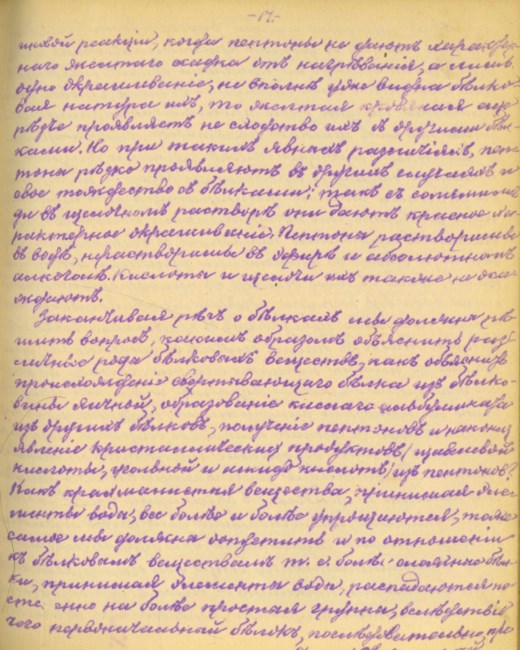 -17-
реакціи, когда пептоны не даютъ
наго желтаго осадка отъ нагрѣванія, а лишь
одно окрашиваніе, не вполнѣ уже видна бѣлко-
вая натура ихъ, то желтая еще
рѣзче проявляетъ не сходство ихъ съ другими бѣл-
ками. Но при такихъ явныхъ различіяхъ, пеп-
тоны рѣзко проявляютъ въ другихъ случаяхъ и
свое тождество съ бѣлками; такъ съ
въ щелочномъ растворѣ они даютъ красное ха-
рактерное окрашиваніе. Пептоны растворимы
въ водѣ, нерастворимы въ эфирѣ и абсолютномъ
алкоголѣ. Кислоты и щелочи ихъ также не оса-
ждаютъ.
Заканчивая рѣчь о бѣлкахъ мы должны рѣ-
шить вопросъ, какимъ образомъ объяснить раз-
личные рода бѣлковыхъ веществъ, какъ объяснить
происхожденіе свертывающаго бѣлка изъ бѣлко-
вины яичной, образованіе кислаго
изъ другихъ бѣлковъ, полученіе пептоновъ и наконецъ
явленіе кристаллическихъ продуктовъ (щавелевой
кислоты, угольной и амидо кислотъ) изъ пептоновъ?
Какъ крахмалистыя вещества, принимая эле-
менты воды, все болѣе и болѣе упрощаются, тоже
самое мы должны допустить и по отношенію
къ бѣлковымъ веществамъ т. е. болѣе сложные бѣл-
ки, принимая элементы воды, распадаются по-
сте енно на болѣе простыя группы, вслѣдствіе
чего первоначальный бѣлокъ, послѣдовательно, про-